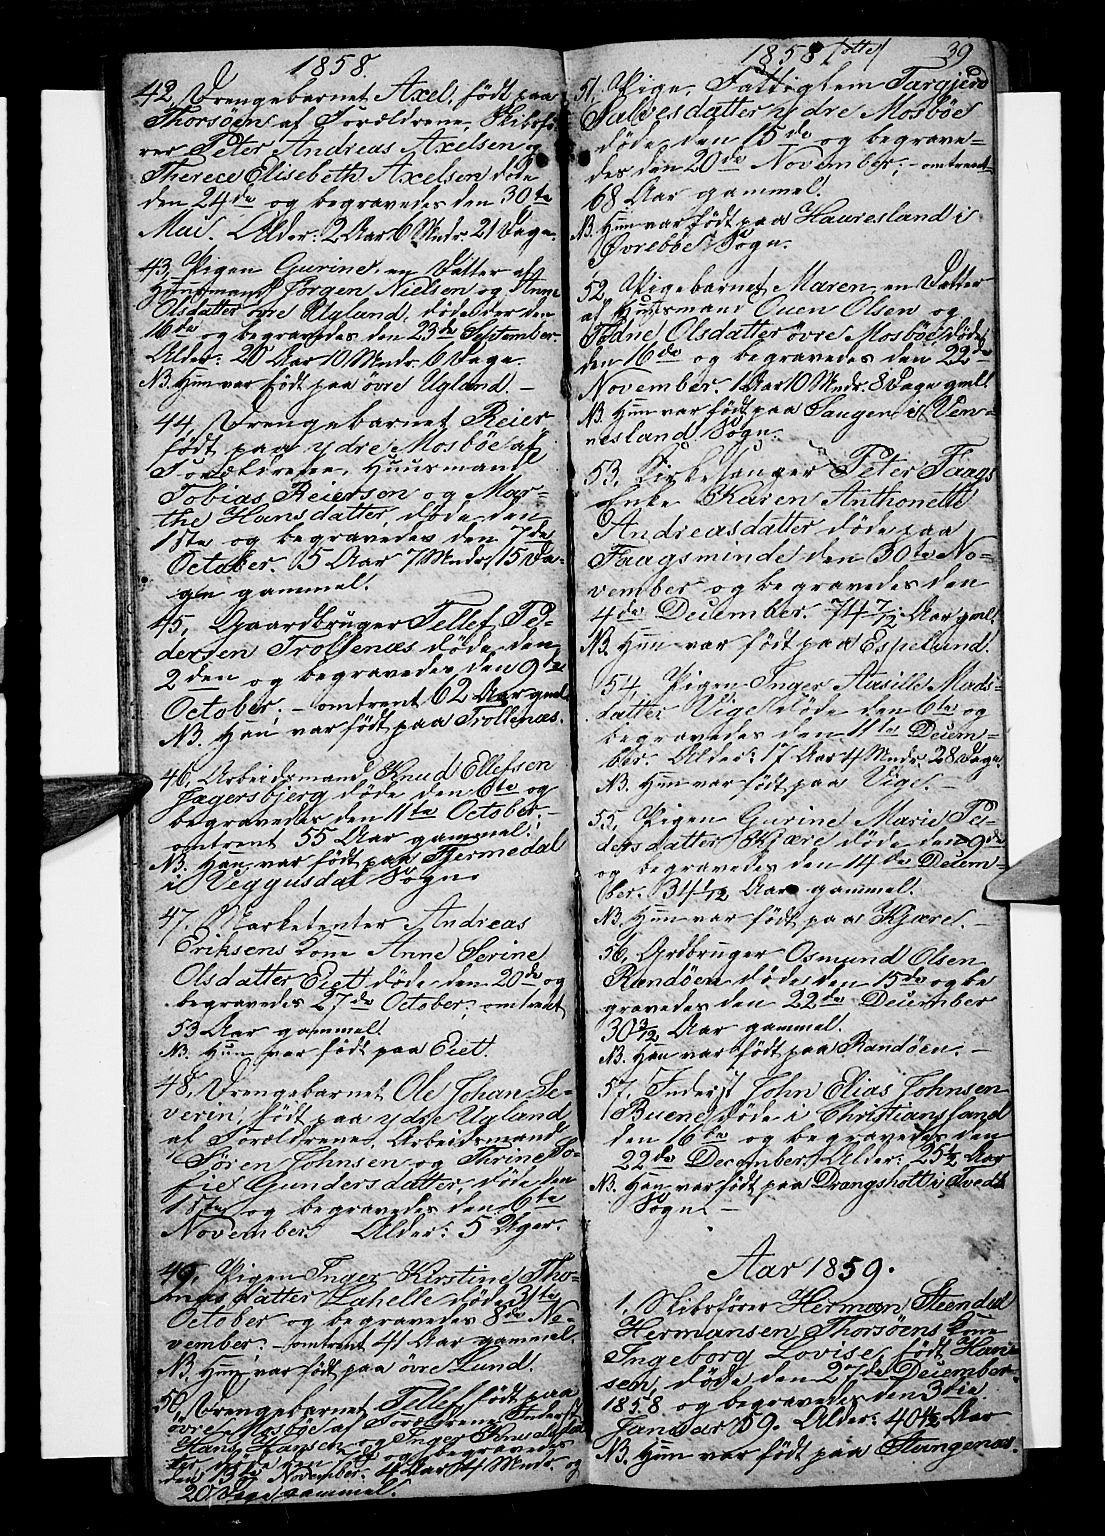 1858.
42, Drengebarnet Axel, født paa
Thorsøen af Forældrene, Skibsfø-
rer Peter Andreas Axelsen og
Therece Elisebeth Axelsen døde
den 24de og begravedes den 30te
Mai. Alder: 2 Aar 6 Mndr. 21 Dage.
43, Pigen Gurine, en Datter af
Huusmand Jørgen Nielsen og Anne
Olsdatter øvre Ugland, døde den
16de og begravedes den 23de September.
Alder: 20 Aar 10 Mndr. 6 Dage.
NB. Hun var født paa øvre Ugland. –
44, Drengebarnet Reier,
født paa ydre Mosbøe af
Forældrene, Huusmand
Tobias Reiersen og Mar-
the Hansdatter, døde den
1ste og begravedes den 7de
October. 5 Aar 7 Mndr. 15 Da-
ge gammel.
45, Gaardbruger Tellef Pe-
dersen Trollenæs døde den
2den og begravedes den 9de
October. – omtrent 62 Aar gml.
NB. Han var født paa Trollenæs.
46, Arbeidsmand Knud Ellefsen
Jægersbjerg døde den 6te og
begravedes den 11te October. –
omtrent 55 Aar gammel.
NB. Han var født paa Tjermedal
i Veggusdal Sogn.
47, Marketenter Andreas
Eriksens Kone Anne Serine
Olsdatter Eiett døde den 20de og
begravedes 27de October: omtrent
53 Aar gammel.
NB. Hun var født paa Eiett.
48, Drengebarnet Ole Johan Se-
verin, født paa ydre Ugland
af Forældrene, Arbeidsmand
Søren Johnsen og Thrine So-
fie Gundersdatter, døde den
1ste og begravedes den 6te
November. Alder: 5 Uger.
49, Pigen Inger Kirstine Tho-
mas datter Lahelle døde 31te
October og begravedes 8de No-
vember. – omtrent 41 Aar gammel.
NB. Hun var født paa øvre Lund.
50, Drengebarnet Tellef, født paa
øvre Mosbøe af Forældrene, Inderst
Hans Hansen og Inger Knudsdat-
ter, døde den og begravedes
den 13te November. 4 Aar 4 Mndr. og
20 Dage gammel.
1858 /otte/ 39
51, Pige, Fattiglem Targjerd
Salvesdatter ydre Mosbøe
døde den 15de og begrave-
des den 20de November, – omtrent
68 Aar gammel.
NB. Hun var født paa Hauresland i
Øvrebøe Sogn.
52, Pigebarnet Maren, en Datter
af Huusmand Ouen Olsen og
Tødne Olsdatter øvre Mosbøe, døde
den 16de og begravedes den 22de
November. 1 Aar 10 Mndr. 8 Dage gml.
NB. Hun var født paa Saugen i Ven-
nesland Sogn.
53, Kirkesanger Peter Faags
Enke Karen Anthonette
Andreasdatter døde paa
Faagsminde den 30te No-
vember og begravedes den
4de December. 74 7/12 Aar gml.
NB. Hun var født paa Espelund.
54, Pigen Inger Aasille Mads-
datter Vige døde den 6te og
begravedes den 11te Decem-
ber. Alder: 17 Aar 4 Mndr. 28 Dage.
NB. Hun var født paa Vige. –
55, Pigen Gurine Marie Pe-
dersdatter Kjære døde den 9de
og begravedes den 14de Decem-
ber. 34 1/12 Aar gammel.
NB. Hun var født paa Kjære. –
56, Grdbruger Osmund Olsen
Randøen døde den 15de og be
gravedes den 22de December
30 3/12 Aar gammel.
NB. Han var født paa Randøen. –
57, Inderst John Elias Johnsen
Buene døde i Christiansland
den 16de og begravedes den
22de December. Alder: 25 1/2 Aar
NB. Han var født paa Drangsholt i Tvedt
Sogn. –
Aar 1859.
1, Skibsfører Hermann Steendal
Hermansen Thorsøens Kone
Ingeborg Lovise, født Han-
sen, døde den 27de December
1858 og begravedes den 3die
Januar 59. Alder: 40 1/2 Aar
NB. Hun var født paa Stangenæs.